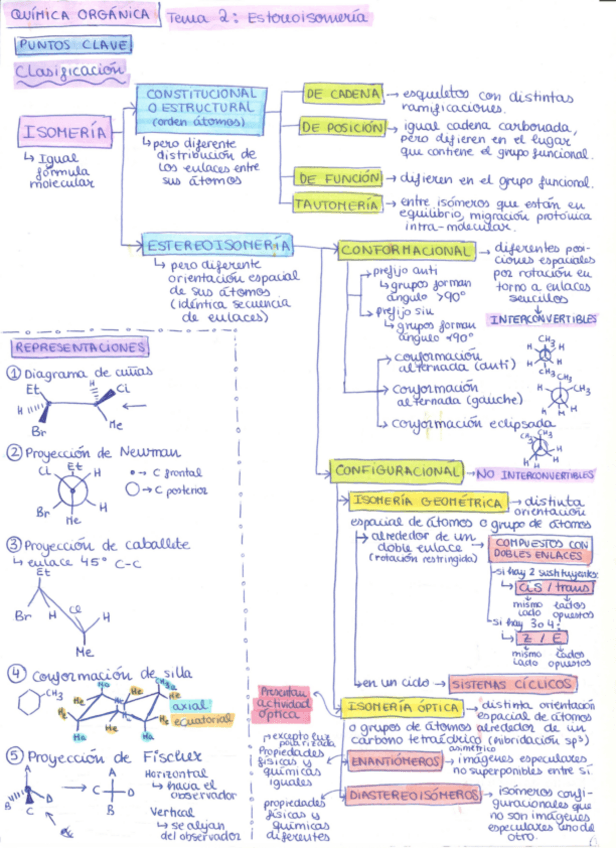 QUÍMICA ORGÁNICA
Tema 2: Estereoisomería
PUNTOS CLAVE
Clasificación
ISOMERÍA
↳ Igual
fórmula
molecular
CONSTITUCIONAL
O ESTRUCTURAL
(orden átomos)
↳ pero diferente
distribución de
los enlaces entre
sus átomos
DE CADENA → esqueletos con distintas
ramificaciones.
DE POSICIÓN → igual cadena carbonada,
pero difieren en el lugar
que contiene el grupo funcional.
DE FUNCIÓN → difieren en el grupo funcional.
TAUTOMERÍA → entre isómeros que están en
equilibrio, migración protónica
intra-molecular.
ESTEREOISOMERÍA
↳ pero diferente
orientación espacial
de sus átomos
(idéntica secuencia
de enlaces)
CONFORMACIONAL → diferentes posi-
ciones espaciales
por rotación en
torno a enlaces
sencillos
INTERCONVERTIBLES
prefijo anti
↳ grupos forman
ángulo >90°
prefijo sin
↳ grupos forman
ángulo <90°
conformación
alternada (anti)
conformación
alternada (gauche)
conformación eclipsada
CH3
H
H
H
H
CH3
CH3
CH3
H
H
H
H
CH3
CH3
H
H
H
H
CONFIGURACIONAL → NO INTERCONVERTIBLES
ISOMERÍA GEOMÉTRICA → distinta
orientación
espacial de átomos o grupo de átomos
↳ alrededor de un
doble enlace
(rotación restringida)
COMPUESTOS CON
DOBLES ENLACES
si hay 2 sustituyentes:
cis / trans
mismo lado
lados opuestos
si hay 3 o 4:
Z / E
mismo lado
lados opuestos
→ en un ciclo → SISTEMAS CÍCLICOS
Presentan
actividad
óptica
ISOMERÍA ÓPTICA → distinta orientación
espacial de átomos
o grupos de átomos alrededor de un
carbono tetraédrico (hibridación sp³)
asimétrico
excepto luz
polarizada
Propiedades
físicas y
químicas
iguales
ENANTIÓMEROS → imágenes especulares
no superponibles entre sí.
propiedades
físicas y
químicas
diferentes
DIASTEREOISÓMEROS → isómeros confi-
guracionales que
no son imágenes
especulares uno de
otro.
REPRESENTACIONES
① Diagrama de cuñas
Et
H
Cl
H
Br
Me
② Proyección de Newman
Cl
Et
H
Br
Me
H
• → C frontal
○ → C posterior
③ Proyección de caballete
↳ enlace 45° C-C
Et
Br
H
Cl
H
Me
④ Conformación de silla
CH3
Ha
He
axial
ecuatorial
⑤ Proyección de Fischer
A
B
C
D
A
C
B
D
C
Horizontal
↳ hacia el
observador
Vertical
↳ se alejan
del observador